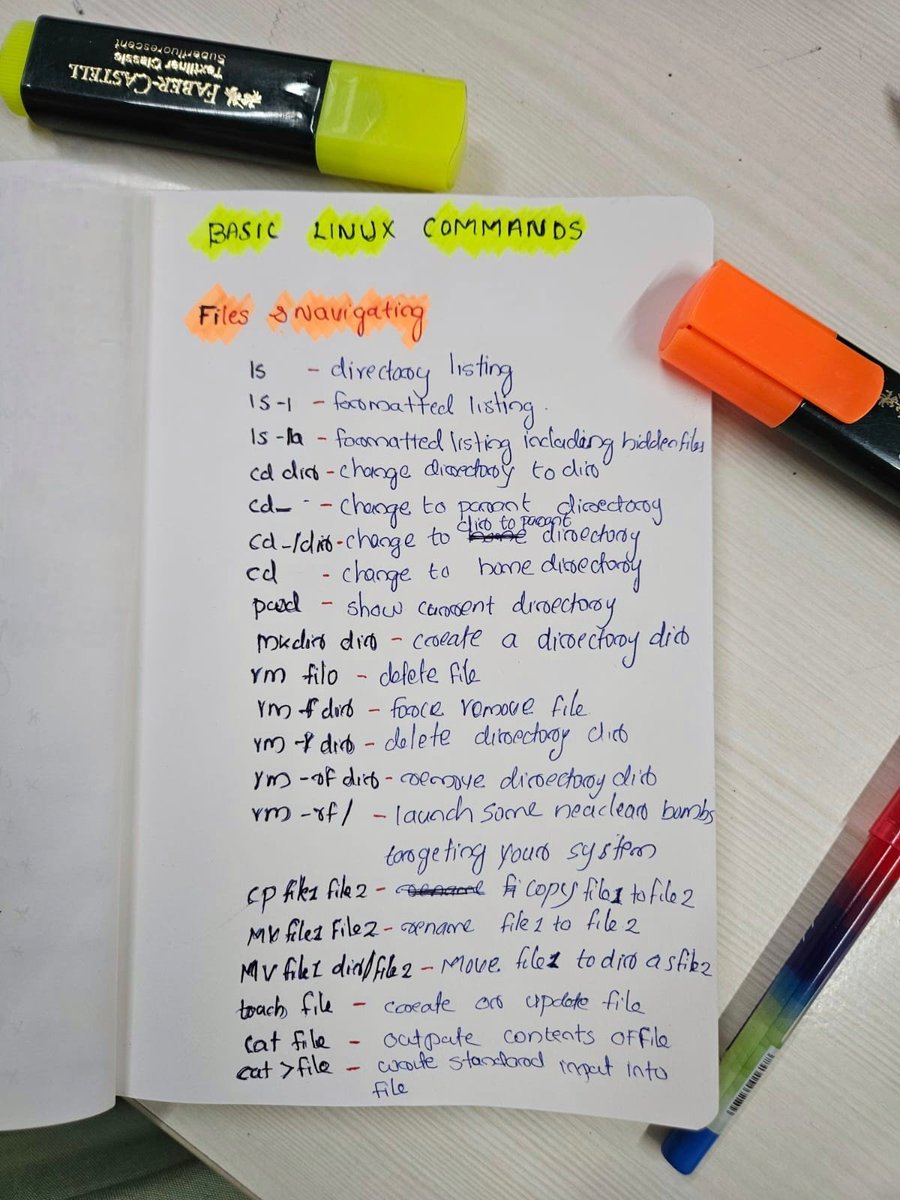 FABER-CASTELL
Textliner Classic
Superfluorescent
BASIC LINUX COMMANDS
Files & Navigating
ls - directory listing
ls -l - formatted listing.
ls -la - formatted listing including hidden files
cd dir - change directory to dir
cd.. - change to parent directory
dir to parent
cd ../dir - change to home directory
cd - change to home directory
pwd - show current directory
mkdir dir - create a directory dir
rm file - delete file
rm -f dir - force remove file
rm -r dir - delete directory dir
rm -rf dir - remove directory dir
rm -rf / - launch some neaclear bombs
targeting your system
cp file1 file2 - rename fi copy file1 to file2
MV file1 File2 - rename file1 to file2
MV file1 dir/file2 - Move file1 to dir as file2
touch file - create or update file
cat file - outpute contents of file
cat > file - write standard input into
file